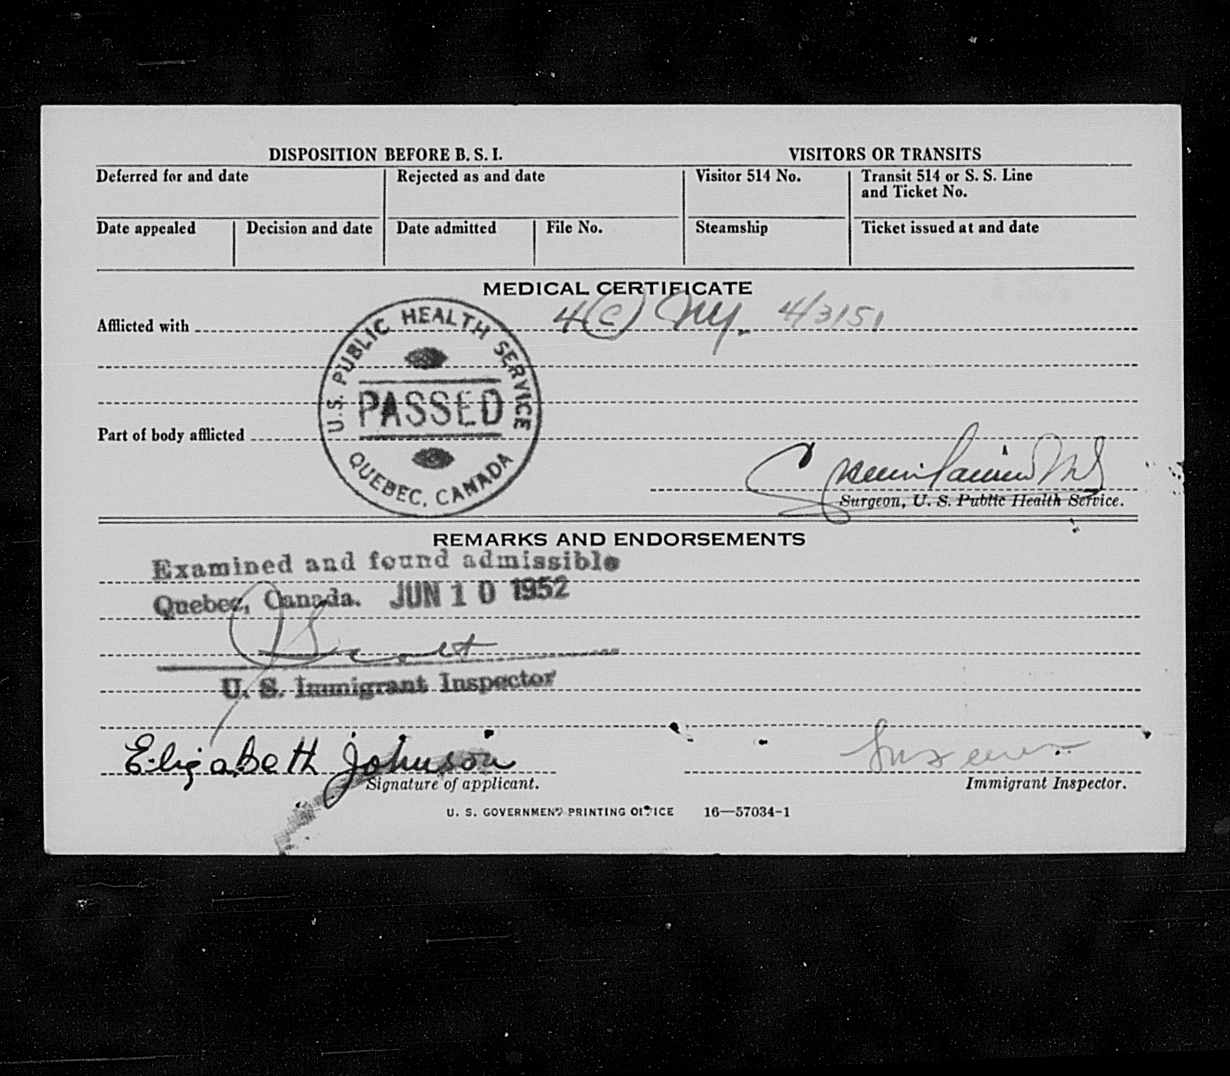 DISPOSITION BEFORE B. S. I.
VISITORS OR TRANSITS
Deferred for and date
Rejected as and date
Visitor 514 No.
Transit 514 or S. S. Line
and Ticket No.
Date appealed
Decision and date
Date admitted
File No.
Steamship
Ticket issued at and date
MEDICAL CERTIFICATE
Afflicted with
4(C) NY. 4/3/51
U.S. PUBLIC HEALTH SERVICE
PASSED
QUEBEC, CANADA
Part of body afflicted
Surgeon, U. S. Public Health Service.
REMARKS AND ENDORSEMENTS
Examined and found admissible
Quebec, Canada. JUN 10 1952
U. S. Immigrant Inspector
Elizabeth Johnson
Signature of applicant.
Immigrant Inspector.
U. S. GOVERNMENT PRINTING OFFICE 16—57034-1